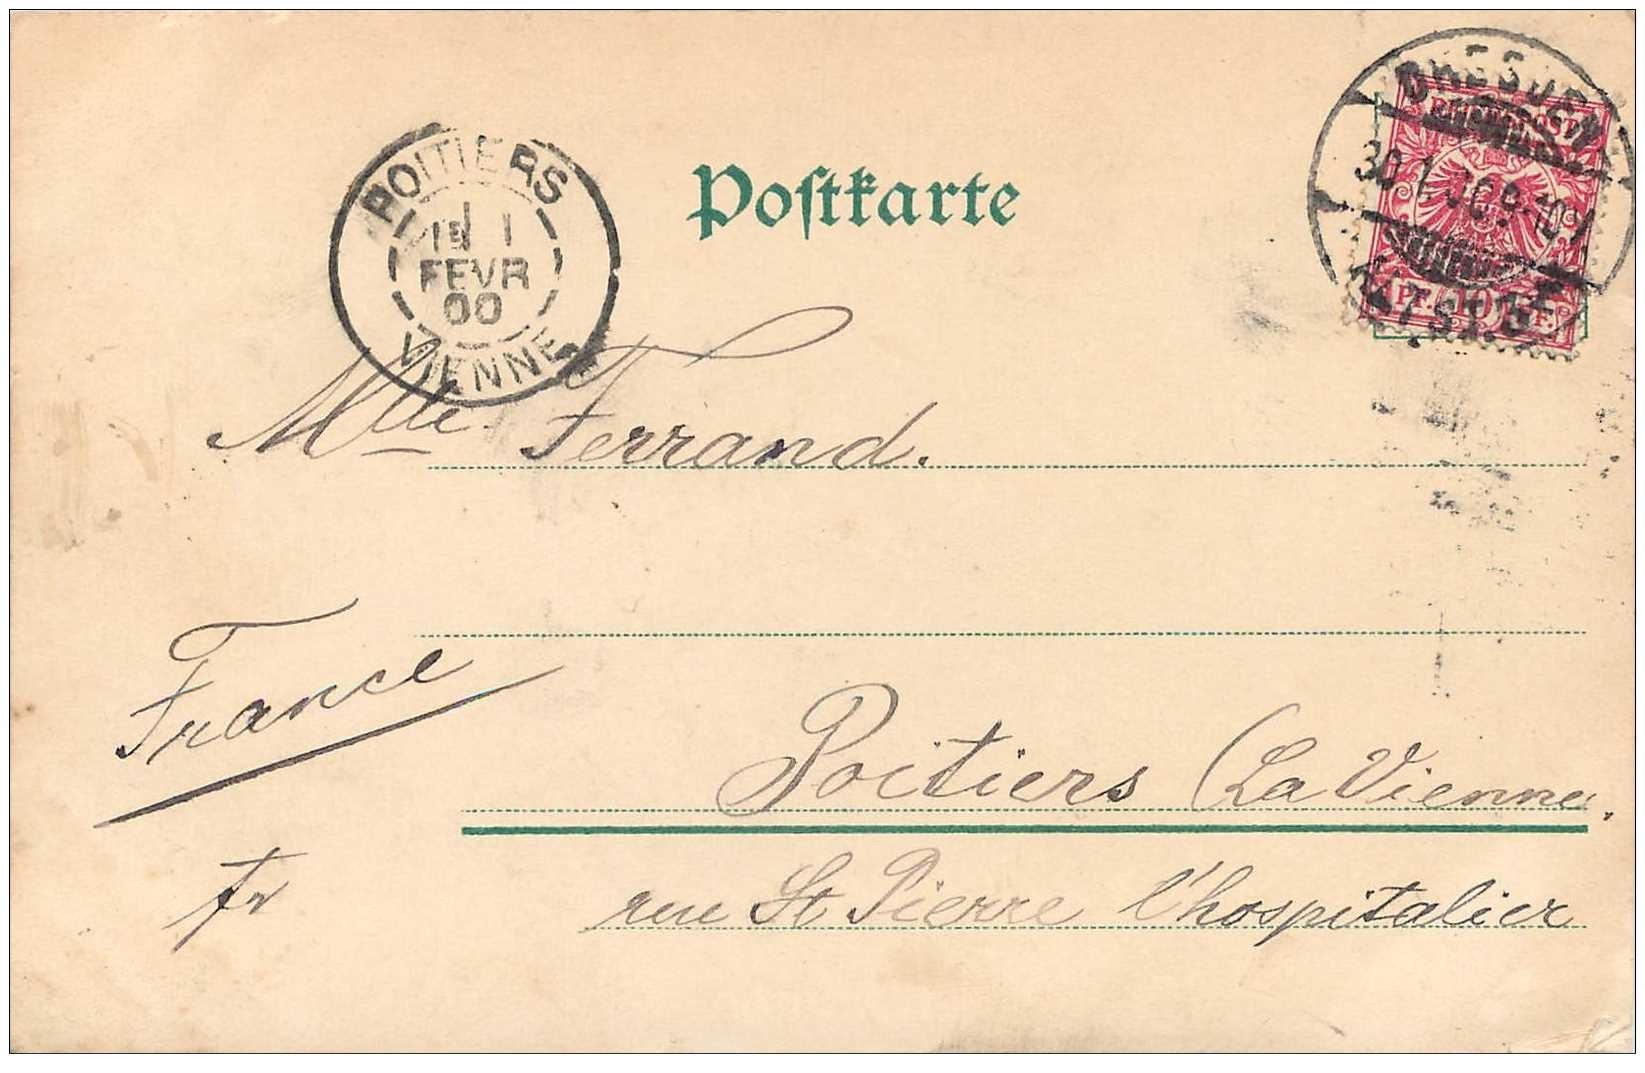 Poſtkarte
POITIERS
1
FEVR
00
VIENNE
DRESDEN
30.1.00.9-10V
REICHSPOST
PF. 10 PF.
Mlle Ferrand.
France
Poitiers (La Vienne.
fr
rue St Pierre l'hospitalier